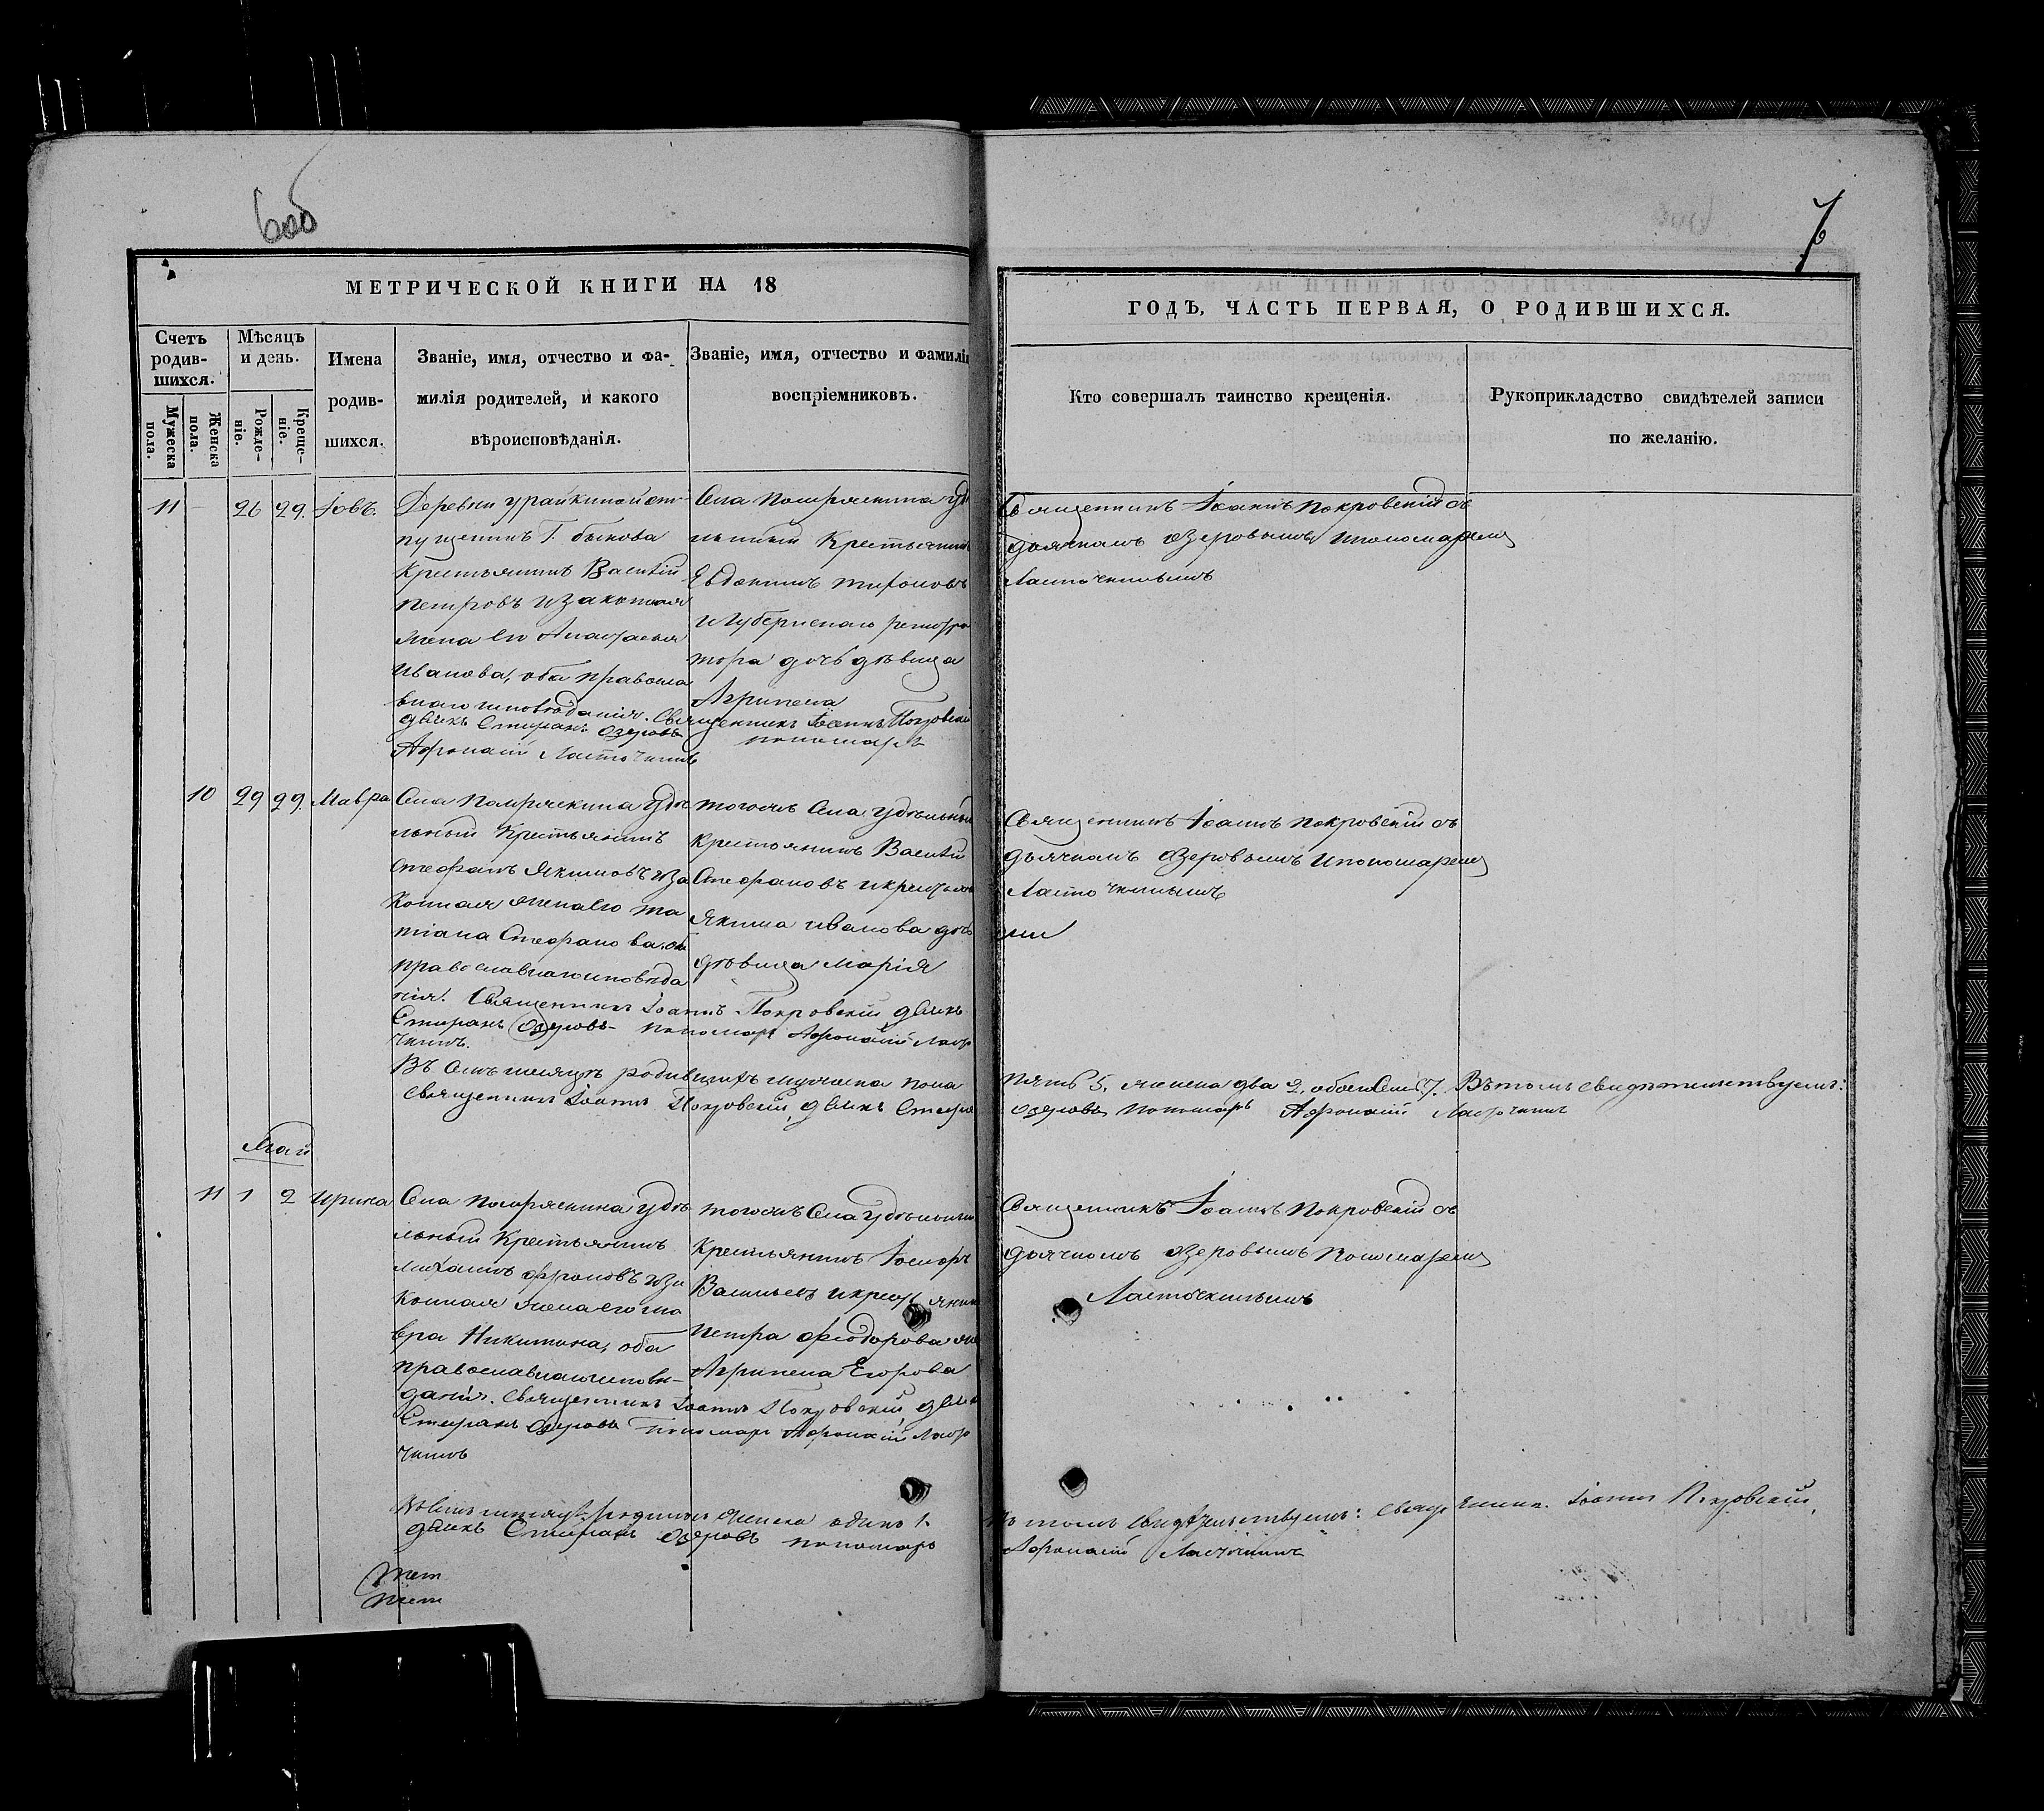 6об
7
МЕТРИЧЕСКОЙ КНИГИ НА 18
ГОДЪ, ЧАСТЬ ПЕРВАЯ, О РОДИВШИХСЯ.
Счетъ родив-шихся.
Мужеска пола.
Женска пола.
Мѣсяцъ и день.
Рожде-ніе.
Креще-ніе.
Имена родив-шихся.
Званіе, имя, отчество и фа-
милія родителей, и какого
вѣроисповѣданія.
Званіе, имя, отчество и фамилія
воспріемниковъ.
Кто совершалъ таинство крещенія.
Рукоприкладство свидѣтелей записи
по желанію.
11 - 26 29. Іовъ.
Деревни Урайкиной от-
пущенникъ Г. Быкова
Крестьянинъ Василій
Петровъ и законная
жена его Анастасія
Иванова, оба правосла
внаго исповѣданія. Священникъ Іоаннъ Покровскій
дьячкъ Стефанъ Озеровъ пономарь
Афонасій Ласточкинъ
Села Помряскина удѣ
льный Крестьянинъ
Евдокимъ
и Губернскаго регистра
тора дочь дѣвица
Агрипена
Священникъ Іоаннъ Покровскій съ
дьячкомъ Озеровымъ и пономаремъ
Ласточкинымъ
10 29 29. Мавра
Села Помряскина удѣ
льный Крестьянинъ
Стефанъ Якимовъ и за
конная жена его Та
тіана Стефанова, оба
православнаго исповѣда
нія. Священникъ Іоаннъ Покровскій дьячкъ
Стефанъ Озеровъ пономарь Афонасій Ласто
чкинъ.
тогожъ Села удѣльный
Крестьянинъ Василій
Стефановъ и крестьян
Якима Иванова дочь
дѣвица Марія
Священникъ Іоаннъ Покровскій съ
дьячкомъ Озеровымъ и пономаремъ
Ласточкинымъ
Въ семъ месяцѣ родившихъ мужеска пола
пять 5, женска два 2, обоего семь 7. Въ томъ свидѣтельствуемъ:
священникъ Іоаннъ Покровскій, дьячкъ Стефа
Озеровъ пономарь Афонасій Ласточкинъ
Май
11 1 2 Ирина
Села Помряскина удѣ
льный Крестьянинъ
и за
конная жена его Ма
вра Никитина, оба
православнаго исповѣ-
данія. Священникъ Іоаннъ Покровскій дьячкъ
Стефанъ Озеровъ Пономарь Афонасій Ласто
чкинъ
тогожъ Села удѣльный
Крестьянинъ
Васильевъ и крестьянин
Петра Феодорова
Агрипена Егорова
Священникъ Іоаннъ Покровскій съ
дьячкомъ Озеровымъ Пономаремъ
Ласточкинымъ
женска одинъ 1.
Въ томъ свидѣтельствуемъ: Священникъ Іоаннъ Покровскій,
дьячкъ Стефанъ Озеровъ пономарь
Афонасій Ласточкинъ